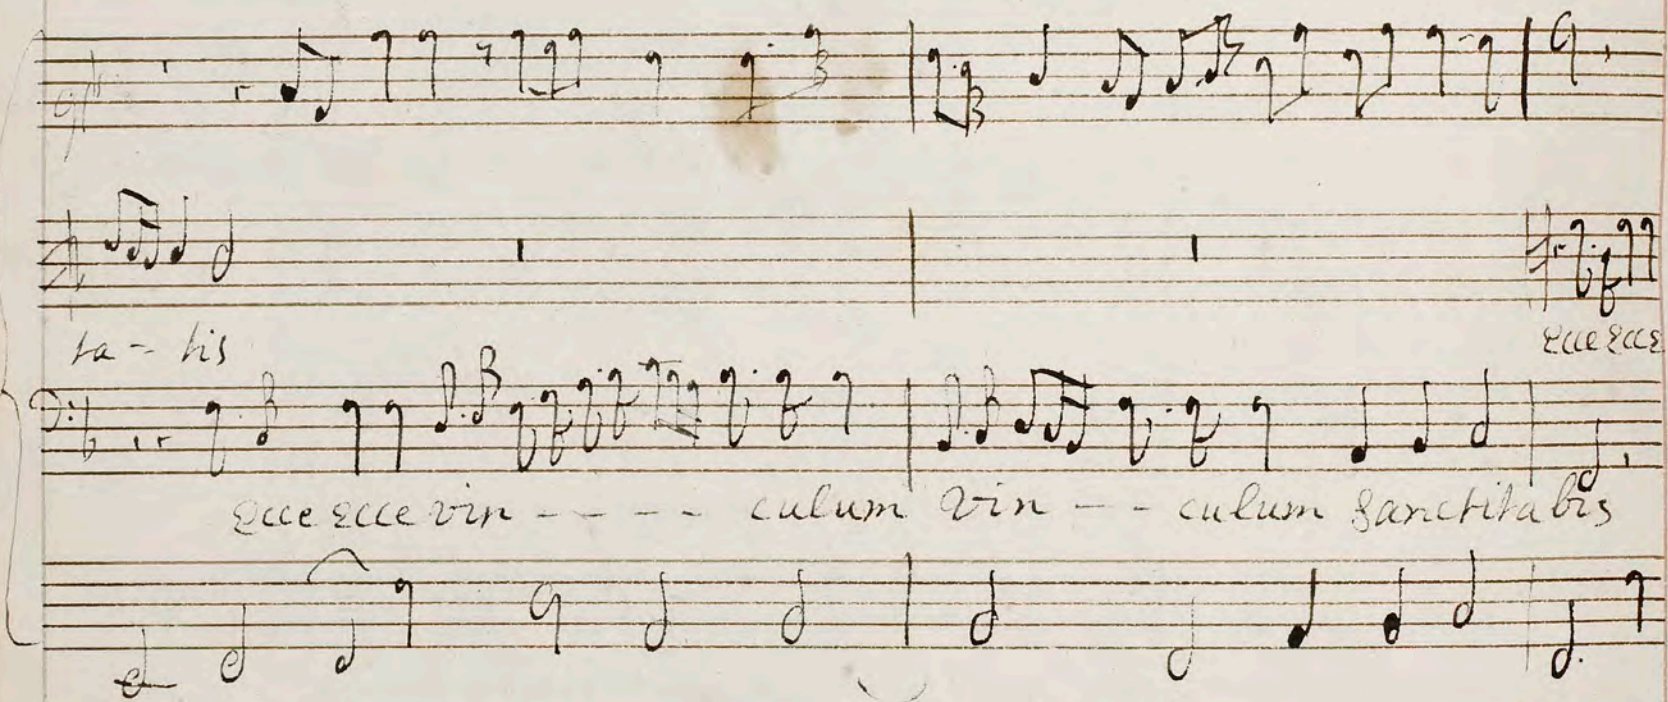 ta - tis
Ecce Ecce
Ecce Ecce vin - - - - - culum Vin - - - culum Sanctitatis